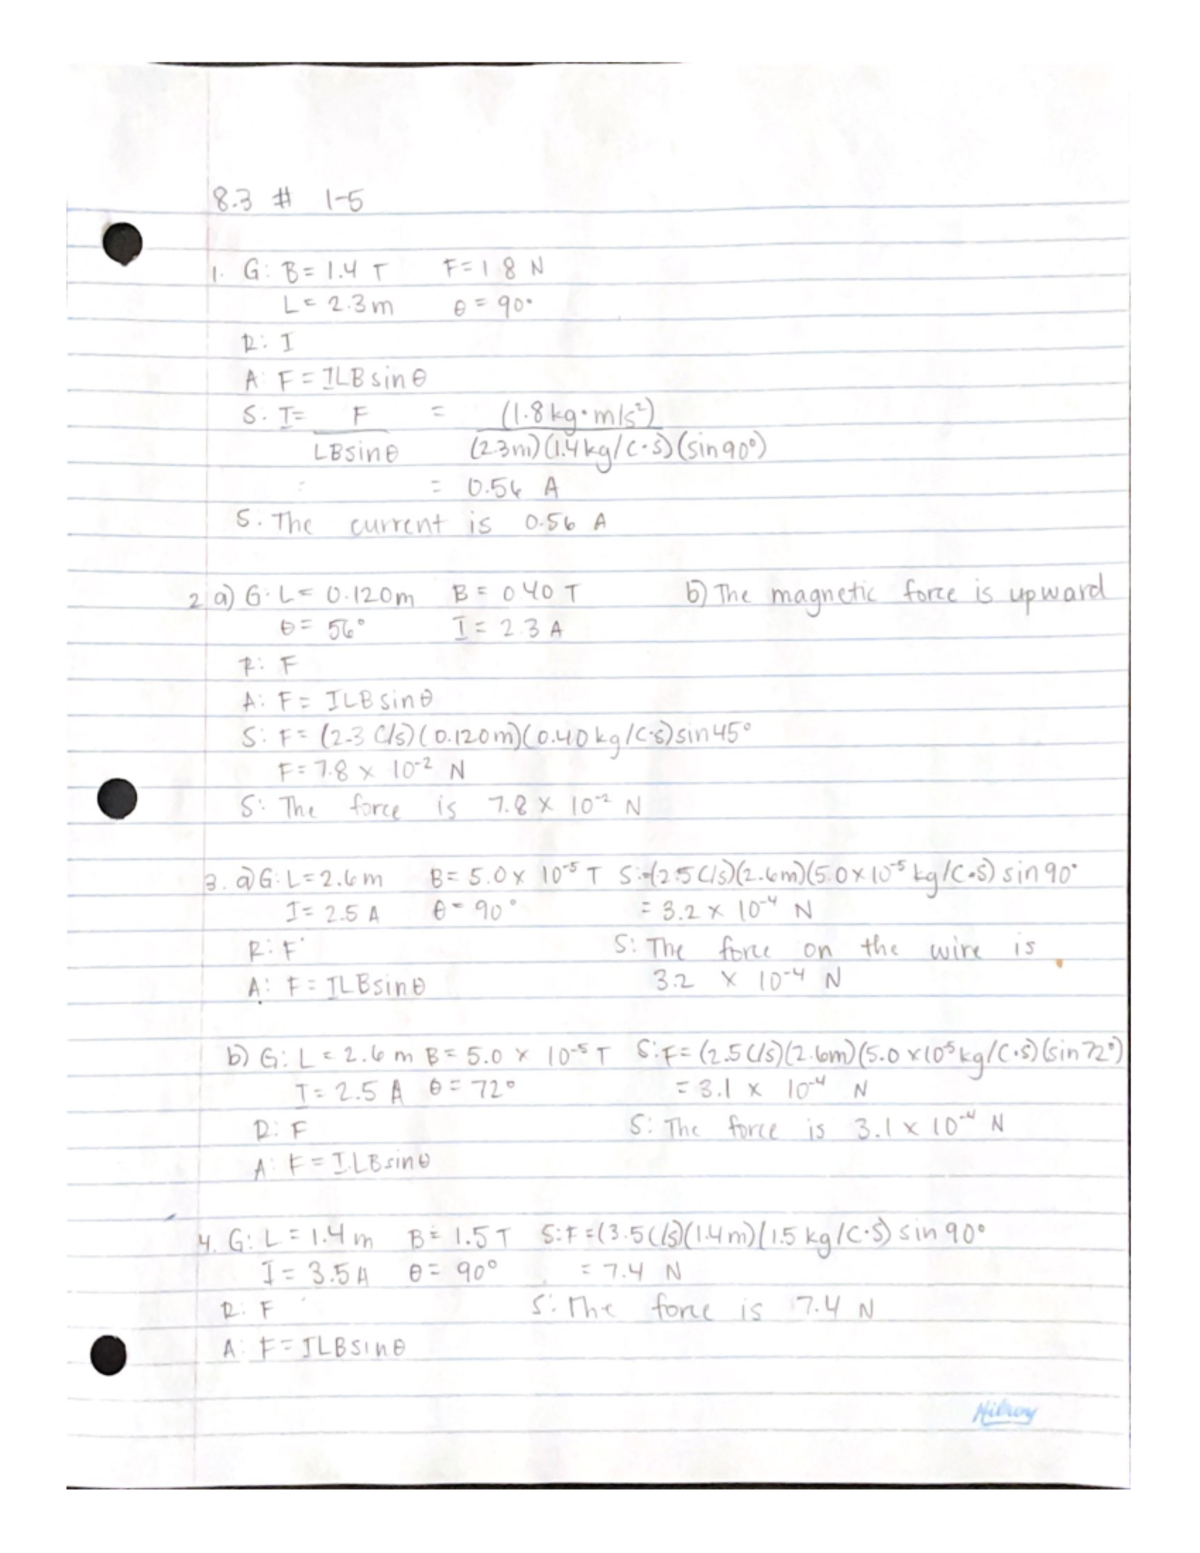 8.3 # 1-5
1. G: B = 1.4 T F = 1.8 N
L = 2.3 m θ = 90°
R: I
A: F = ILB sin θ
S: I = F / LB sin θ = (1.8 kg·m/s²) / (2.3m)(1.4 kg/C·s)(sin 90°)
= 0.56 A
S. The current is 0.56 A
2 a) G: L = 0.120 m B = 0.40 T b) The magnetic force is upward
θ = 56° I = 2.3 A
R: F
A: F = ILB sin θ
S: F = (2.3 C/s)(0.120m)(0.40 kg/C·s) sin 45°
F = 7.8 × 10⁻² N
S: The force is 7.8 × 10⁻² N
3. a) G: L = 2.6 m B = 5.0 × 10⁻⁵ T S: (2.5 C/s)(2.6m)(5.0 × 10⁻⁵ kg/C·s) sin 90°
I = 2.5 A θ = 90° = 3.2 × 10⁻⁴ N
R: F S: The force on the wire is
A: F = ILB sin θ 3.2 × 10⁻⁴ N
b) G: L = 2.6 m B = 5.0 × 10⁻⁵ T S: F = (2.5 C/s)(2.6m)(5.0 × 10⁵ kg/C·s)(sin 72°)
I = 2.5 A θ = 72° = 3.1 × 10⁻⁴ N
R: F S: The force is 3.1 × 10⁻⁴ N
A: F = ILB sin θ
4. G: L = 1.4 m B = 1.5 T S: F = (3.5 C/s)(1.4m)(1.5 kg/C·s) sin 90°
I = 3.5 A θ = 90° = 7.4 N
R: F S: The force is 7.4 N
A: F = ILB sin θ
Hilroy